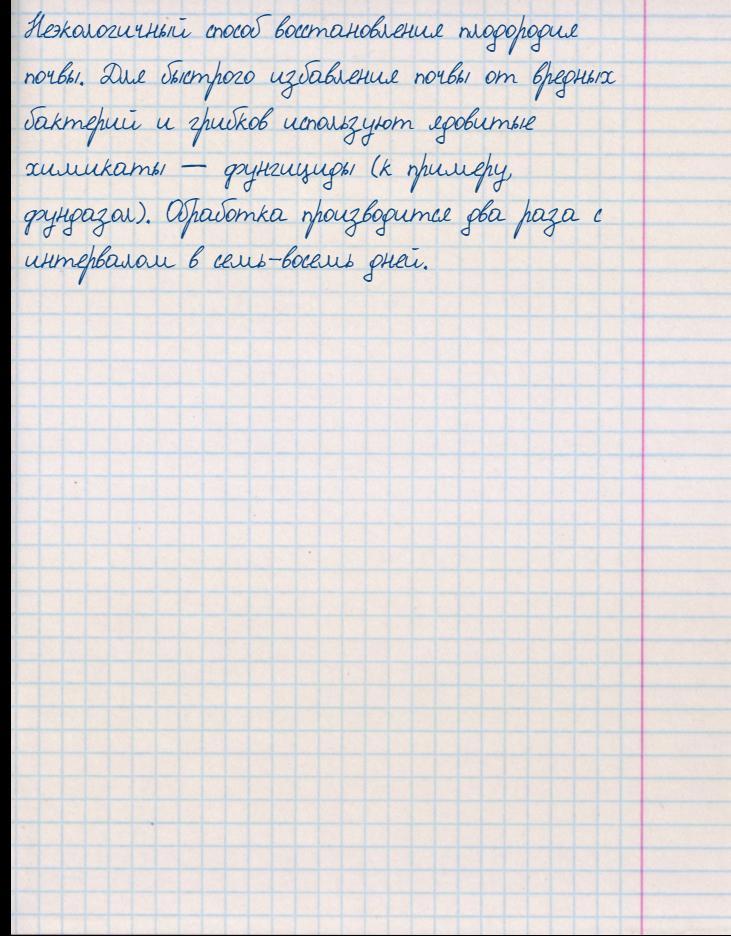 Неэкологичный способ восстановления плодородия
почвы. Для быстрого избавления почвы от вредных
бактерий и грибков используют ядовитые
химикаты — фунгициды (к примеру,
фундазол). Обработка производится два раза с
интервалом в семь-восемь дней.